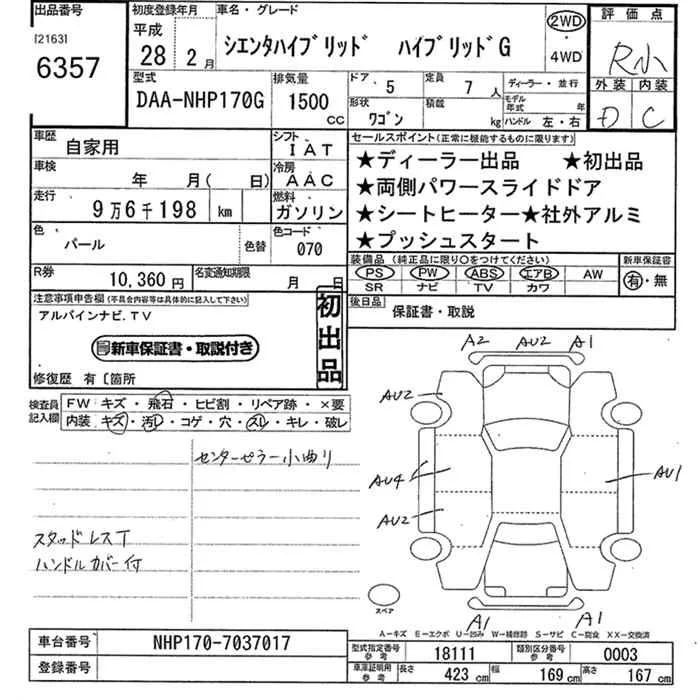 出品番号
[2163]
6357
初度登録年月
平成
28 2月
車名・グレード
シエンタハイブリッド ハイブリッドG
2WD
・
4WD
評価点
R小
外装 内装
D C
型式
DAA-NHP170G
排気量
1500
CC
ドア 5
定員 7 人
ディーラー・並行
形状 ワゴン
積載 kg
モデル年式 年
ハンドル 左・右
車歴 自家用
シフト IAT
車検 年 月( 日)
冷房 AAC
走行 9万6千198 km
燃料 ガソリン
色 パール
色替
色コード 070
R券 10,360円
名変通知期限 月 日
セールスポイント(正常に機能するものに限ります)
★ディーラー出品 ★初出品
★両側パワースライドドア
★シートヒーター★社外アルミ
★プッシュスタート
装備品 (純正品に限り○をつけてください)
PS PW ABS エアB AW
SR ナビ TV カワ
新車保証書
有・無
後日品 保証書・取説
注意事項申告欄(不具合内容等は具体的に記入して下さい)
アルパインナビ.TV
新車保証書・取説付き
初出品
修復歴 有〔箇所
検査員記入欄
FW キズ・飛石・ヒビ割・リペア跡・×要
内装 キズ・汚レ・コゲ・穴・スレ・キレ・破レ
センターピラー小曲り
スタッドレスT
ハンドルカバー付
A2 AU2 A1
AU2
AU4
AU1
AU2
A1 A1
スペア
A-キズ E-エクボ U-凹み W-補修跡 S-サビ C-腐食 XX-交換済
車台番号 NHP170-7037017
登録番号
型式指定番号 参考 18111
類別区分番号 参考 0003
車庫証明用 参考 長さ 423 cm 幅 169 cm 高さ 167 cm